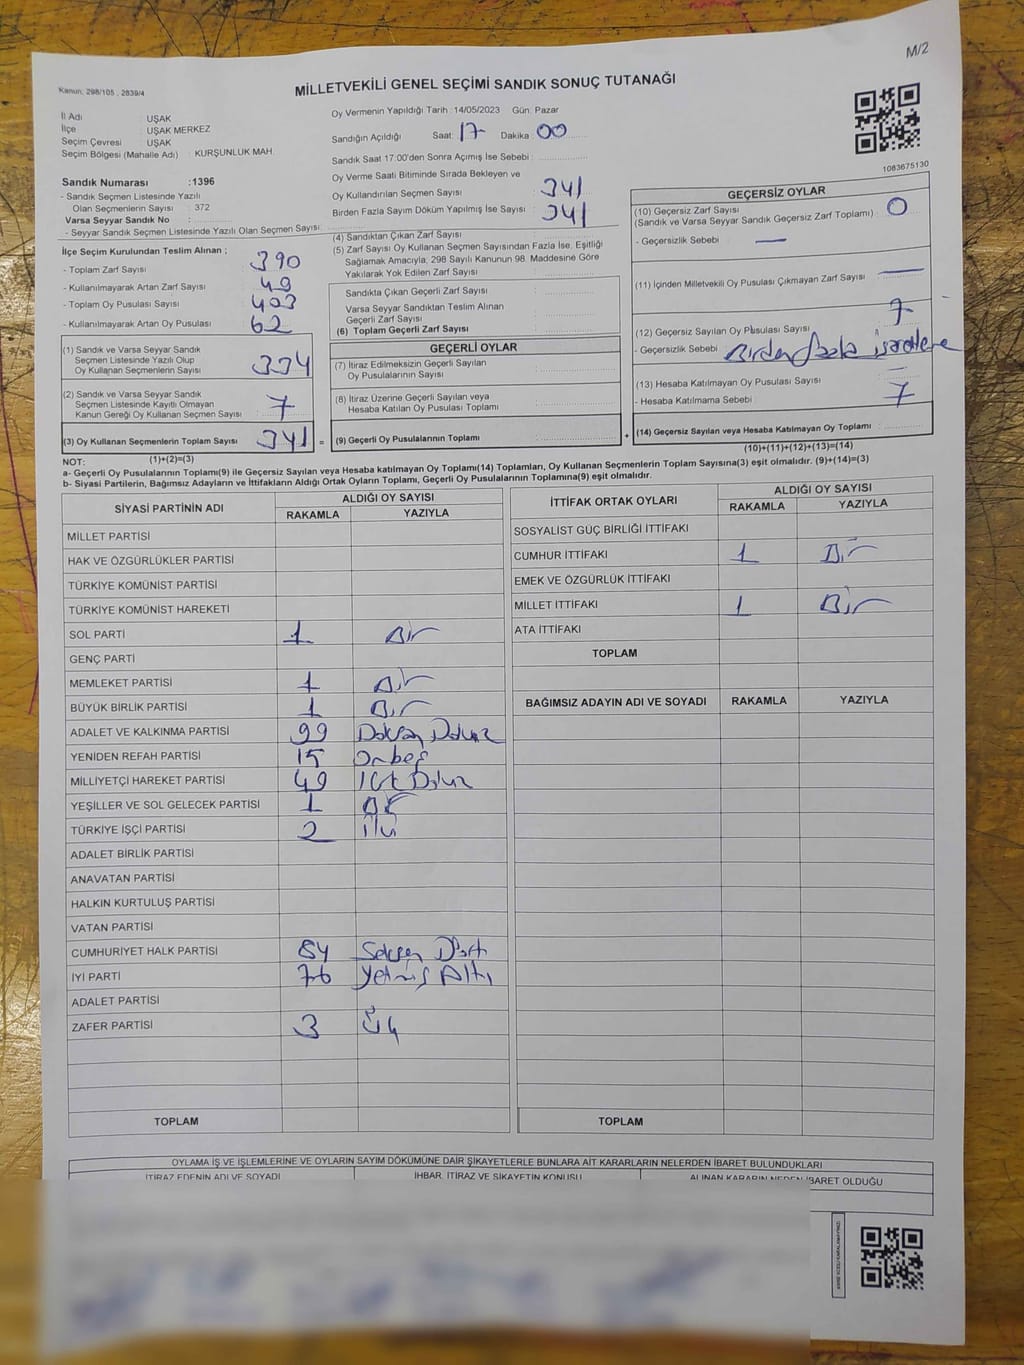 M/2
Kanun: 298/105 , 2839/4
MİLLETVEKİLİ GENEL SEÇİMİ SANDIK SONUÇ TUTANAĞI
İl Adı UŞAK
İlçe UŞAK MERKEZ
Seçim Çevresi UŞAK
Seçim Bölgesi (Mahalle Adı) : KURŞUNLUK MAH.
Oy Vermenin Yapıldığı Tarih : 14/05/2023 Gün: Pazar
Sandığın Açıldığı Saat: 17 Dakika: 00
Sandık Saat 17:00'den Sonra Açımış İse Sebebi :
Oy Verme Saati Bitiminde Sırada Bekleyen ve
Oy Kullandırılan Seçmen Sayısı 341
Birden Fazla Sayım Döküm Yapılmış İse Sayısı 341
1083675130
Sandık Numarası :1396
- Sandık Seçmen Listesinde Yazılı
Olan Seçmenlerin Sayısı : 372
Varsa Seyyar Sandık No :
- Seyyar Sandık Seçmen Listesinde Yazılı Olan Seçmen Sayısı:
İlçe Seçim Kurulundan Teslim Alınan ;
- Toplam Zarf Sayısı 390
- Kullanılmayarak Artan Zarf Sayısı 49
- Toplam Oy Pusulası Sayısı 403
- Kullanılmayarak Artan Oy Pusulası 62
(1) Sandık ve Varsa Seyyar Sandık
Seçmen Listesinde Yazılı Olup
Oy Kullanan Seçmenlerin Sayısı 334
(2) Sandık ve Varsa Seyyar Sandık
Seçmen Listesinde Kayıtlı Olmayan
Kanun Gereği Oy Kullanan Seçmen Sayısı 7
(3) Oy Kullanan Seçmenlerin Toplam Sayısı 341 =
(1)+(2)=(3)
(4) Sandıktan Çıkan Zarf Sayısı
(5) Zarf Sayısı Oy Kullanan Seçmen Sayısından Fazla İse, Eşitliği
Sağlamak Amacıyla; 298 Sayılı Kanunun 98. Maddesine Göre
Yakılarak Yok Edilen Zarf Sayısı
Sandıkta Çıkan Geçerli Zarf Sayısı
Varsa Seyyar Sandıktan Teslim Alınan
Geçerli Zarf Sayısı
(6) Toplam Geçerli Zarf Sayısı
GEÇERLİ OYLAR
(7) İtiraz Edilmeksizin Geçerli Sayılan
Oy Pusulalarının Sayısı
(8) İtiraz Üzerine Geçerli Sayılan veya
Hesaba Katılan Oy Pusulası Toplamı
(9) Geçerli Oy Pusulalarının Toplamı +
GEÇERSİZ OYLAR
(10) Geçersiz Zarf Sayısı
(Sandık ve Varsa Seyyar Sandık Geçersiz Zarf Toplamı) : 0
- Geçersizlik Sebebi : —
(11) İçinden Milletvekili Oy Pusulası Çıkmayan Zarf Sayısı —
(12) Geçersiz Sayılan Oy Pusulası Sayısı 7
- Geçersizlik Sebebi Birden fazla işaretleme
(13) Hesaba Katılmayan Oy Pusulası Sayısı –
- Hesaba Katılmama Sebebi 7
(14) Geçersiz Sayılan veya Hesaba Katılmayan Oy Toplamı
(10)+(11)+(12)+(13)=(14)
NOT:
a- Geçerli Oy Pusulalarının Toplamı(9) ile Geçersiz Sayılan veya Hesaba katılmayan Oy Toplamı(14) Toplamları, Oy Kullanan Seçmenlerin Toplam Sayısına(3) eşit olmalıdır. (9)+(14)=(3)
b- Siyasi Partilerin, Bağımsız Adayların ve İttifakların Aldığı Ortak Oyların Toplamı, Geçerli Oy Pusulalarının Toplamına(9) eşit olmalıdır.
SİYASİ PARTİNİN ADI ALDIĞI OY SAYISI
RAKAMLA YAZIYLA
MİLLET PARTİSİ
HAK VE ÖZGÜRLÜKLER PARTİSİ
TÜRKİYE KOMÜNİST PARTİSİ
TÜRKİYE KOMÜNİST HAREKETİ
SOL PARTİ 1 Bir
GENÇ PARTİ
MEMLEKET PARTİSİ 1 Bir
BÜYÜK BİRLİK PARTİSİ 1 Bir
ADALET VE KALKINMA PARTİSİ 99 Doksan Dokuz
YENİDEN REFAH PARTİSİ 15 Onbeş
MİLLİYETÇİ HAREKET PARTİSİ 49 Kırk Dokuz
YEŞİLLER VE SOL GELECEK PARTİSİ 1 Bir
TÜRKİYE İŞÇİ PARTİSİ 2 İki
ADALET BİRLİK PARTİSİ
ANAVATAN PARTİSİ
HALKIN KURTULUŞ PARTİSİ
VATAN PARTİSİ
CUMHURİYET HALK PARTİSİ 84 Seksen Dört
İYİ PARTİ 76 Yetmiş Altı
ADALET PARTİSİ
ZAFER PARTİSİ 3 Üç
TOPLAM
İTTİFAK ORTAK OYLARI ALDIĞI OY SAYISI
RAKAMLA YAZIYLA
SOSYALİST GÜÇ BİRLİĞİ İTTİFAKI
CUMHUR İTTİFAKI 1 Bir
EMEK VE ÖZGÜRLÜK İTTİFAKI
MİLLET İTTİFAKI 1 Bir
ATA İTTİFAKI
TOPLAM
BAĞIMSIZ ADAYIN ADI VE SOYADI RAKAMLA YAZIYLA
TOPLAM
OYLAMA İŞ VE İŞLEMLERİNE VE OYLARIN SAYIM DÖKÜMÜNE DAİR ŞİKAYETLERLE BUNLARA AİT KARARLARIN NELERDEN İBARET BULUNDUKLARI
İTİRAZ EDENİN ADI VE SOYADI İHBAR, İTİRAZ VE ŞİKAYETİN KONUSU ALINAN KARARIN NEDEN İBARET OLDUĞU